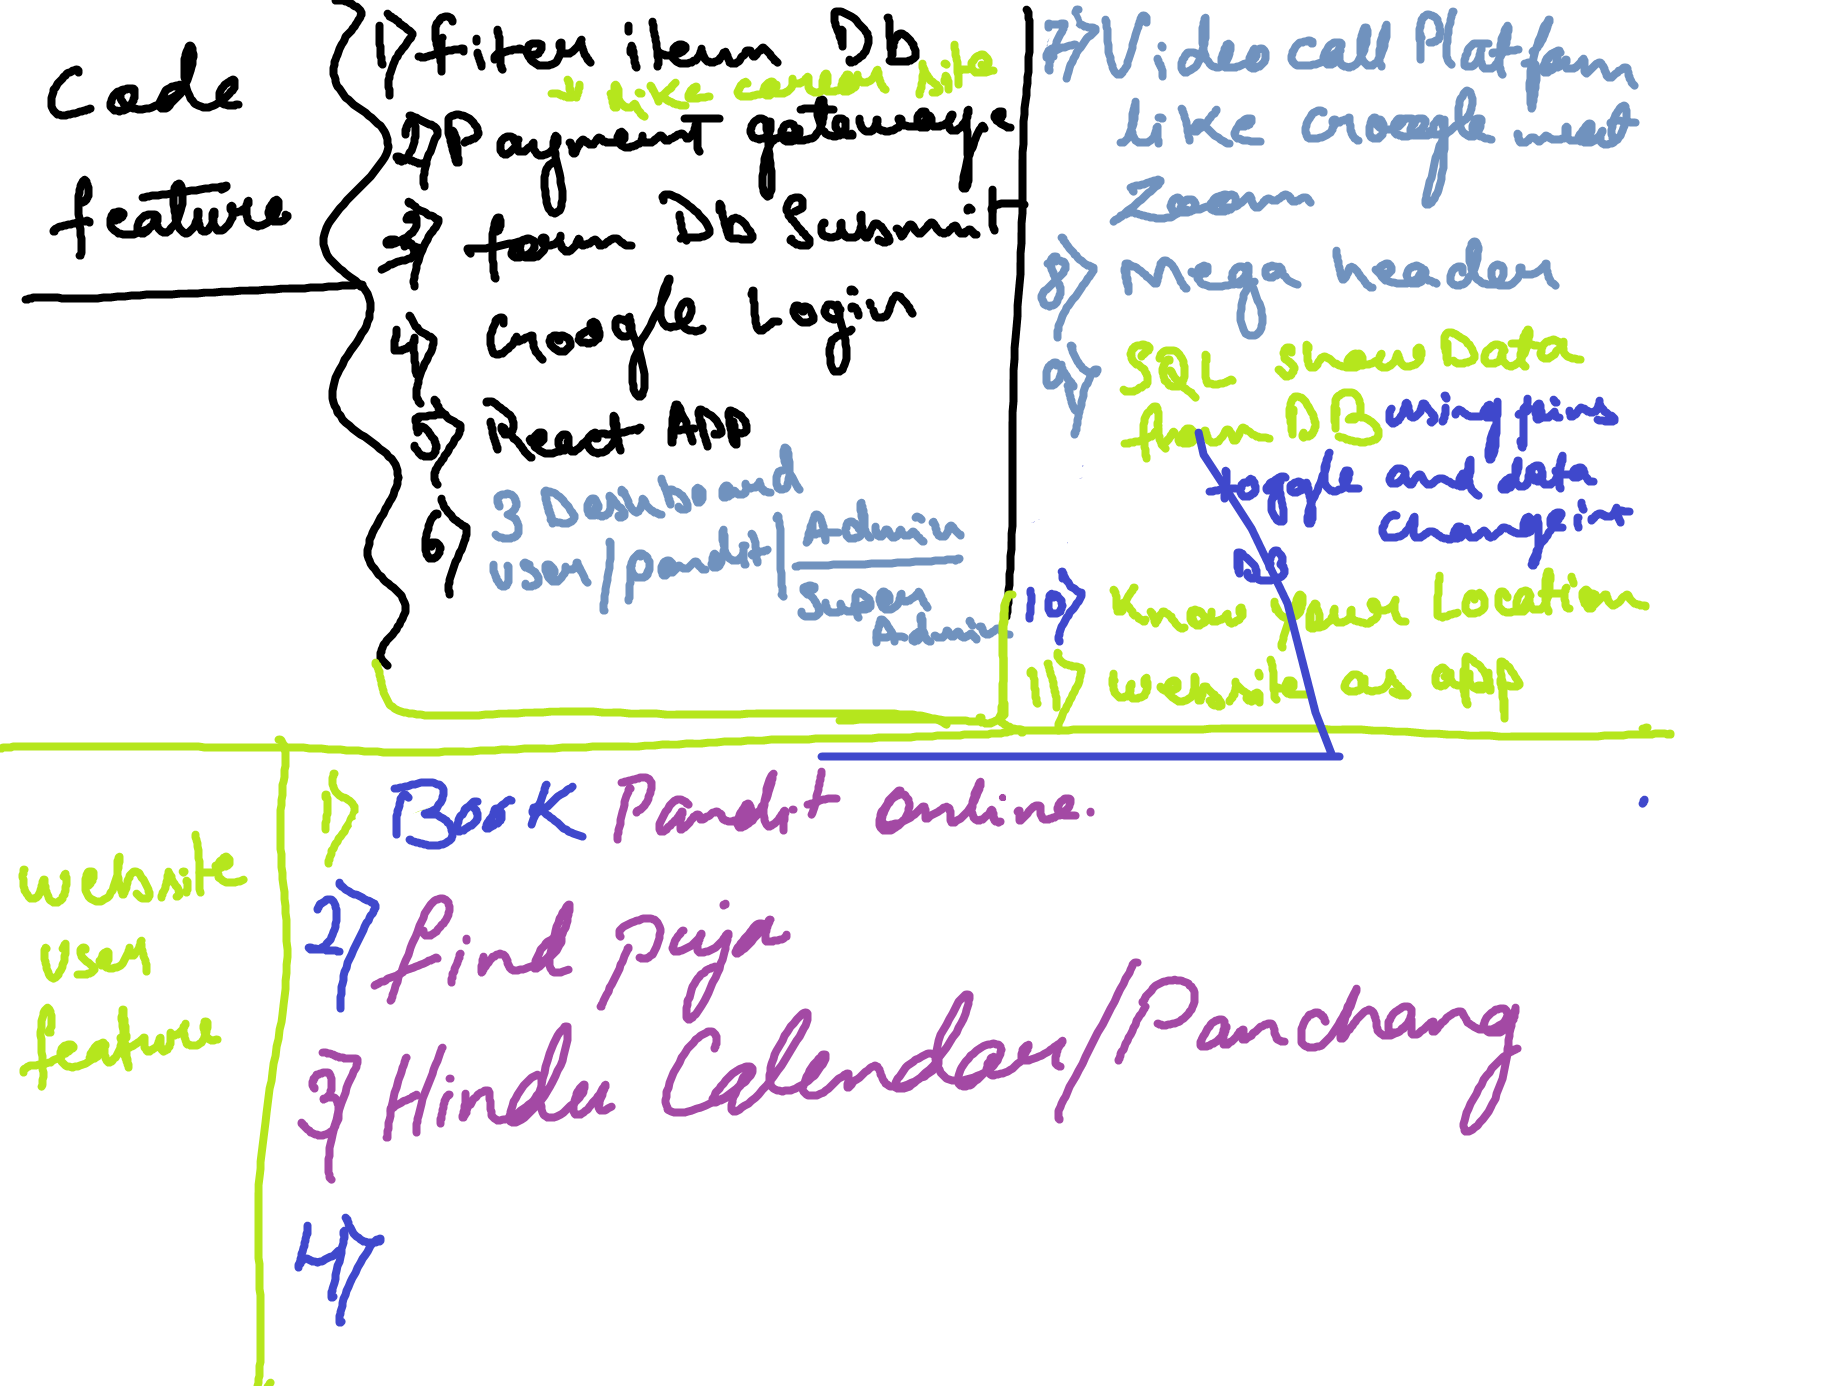 Code
feature
1) fiter item Db
→ like career site
2) Payment gateway
3) form Db Submit
4) Google Login
5) React APP
6) 3 Dashboard
user/pandit/Admin
Super
Admin
7) Video call Platform
like Google meet
Zoom
8) Mega header
9) SQL show Data
from DB using joins
toggle and data
change int
DB
10) Know your Location
11) website as app
website
user
feature
1) Book Pandit online.
2) find puja
3) Hindu Calendar/Panchang
4)